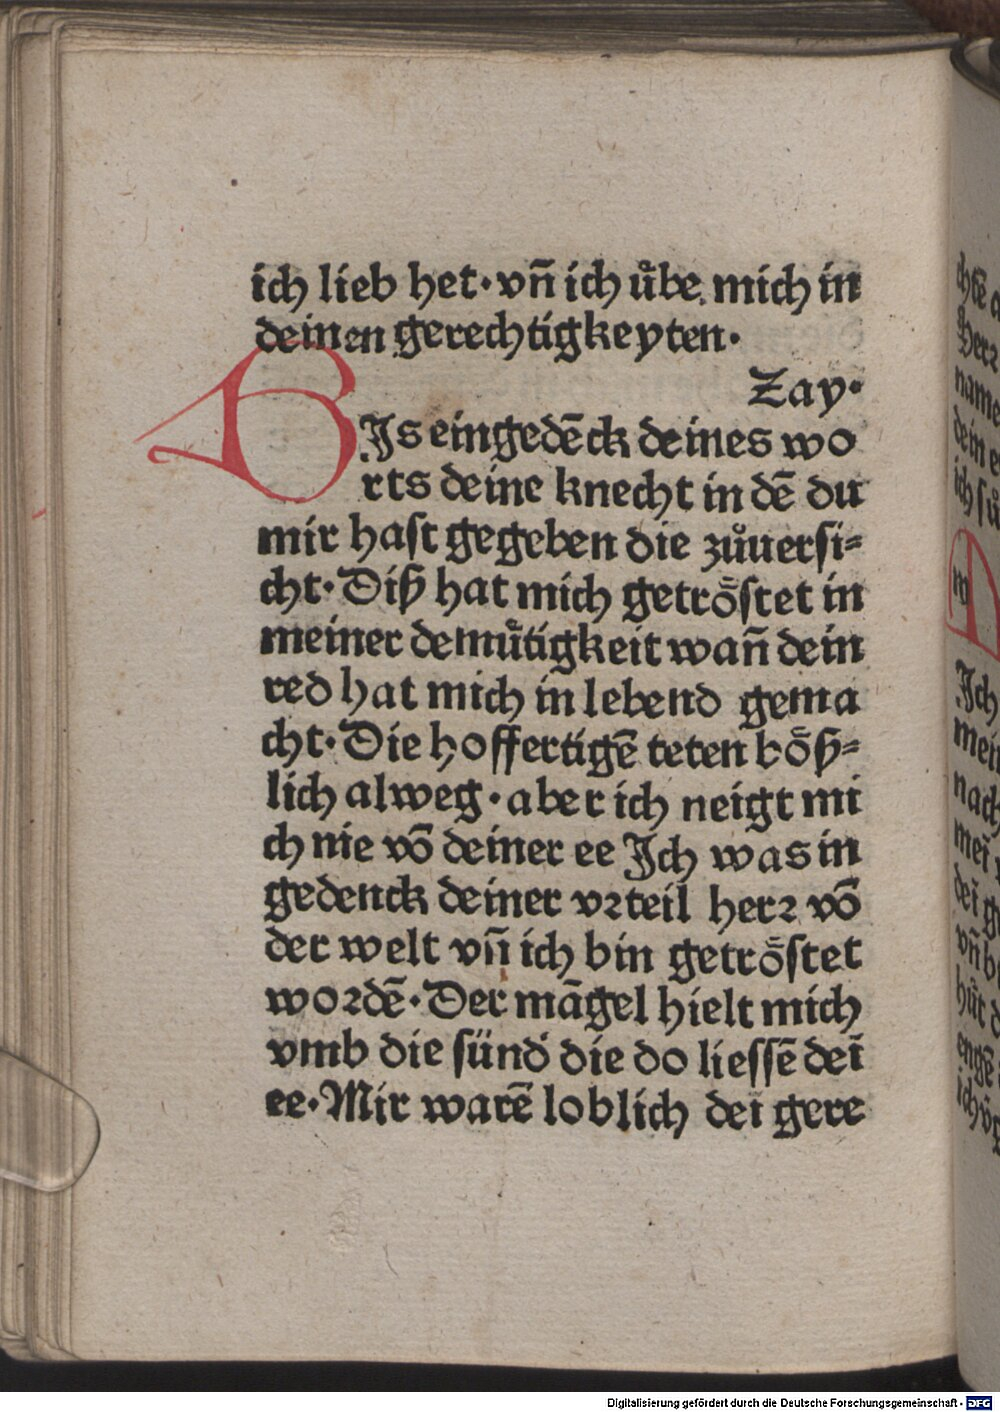 ich lieb het· vñ ich uͤbe mich in
deinen gerechtigkeyten·
Zay·
BJs eingedēck deines wo
rts deine knecht in dē du
mir hast gegeben die zůuersi⸗
cht· Diß hat mich getroͤstet in
meiner demuͤtigkeit wañ dein
red hat mich in lebend gema
cht· Die hoffertigē teten boͤß⸗
lich alweg· aber ich neigt mi
ch nie vō deiner ee Jch was in
gedenck deiner vꝛteil herꝛ vō
der welt vñ ich bin getroͤstet
woꝛdē· Der māgel hielt mich
vmb die sünd die do liessē deī
ee· Mir warē loblich dei gere
Digitalisierung gefördert durch die Deutsche Forschungsgemeinschaft - DFG